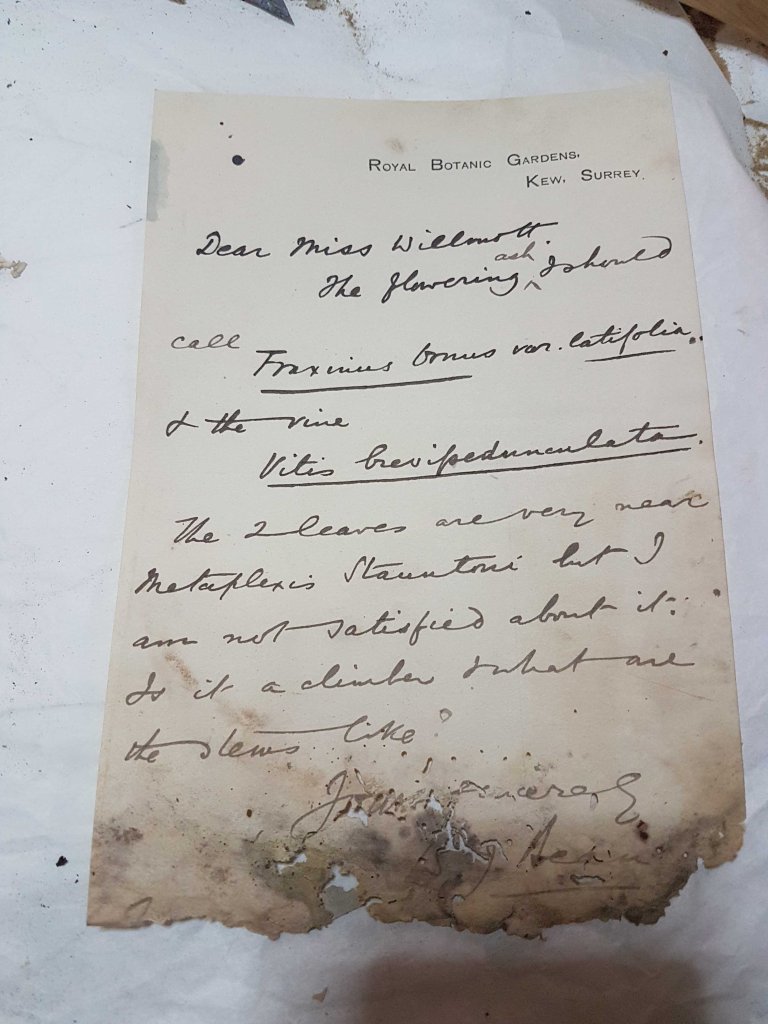 ROYAL BOTANIC GARDENS,
KEW, SURREY.
Dear Miss Willmott.
The flowering ash I should
call
Fraxinus Ornus var. latifolia.
& the vine
Vitis brevipedunculata.
The 2 leaves are very near
Metaplexis Stauntoni but I
am not satisfied about it:
Is it a climber & what are
the stems like?
Yours sincerely
Bean